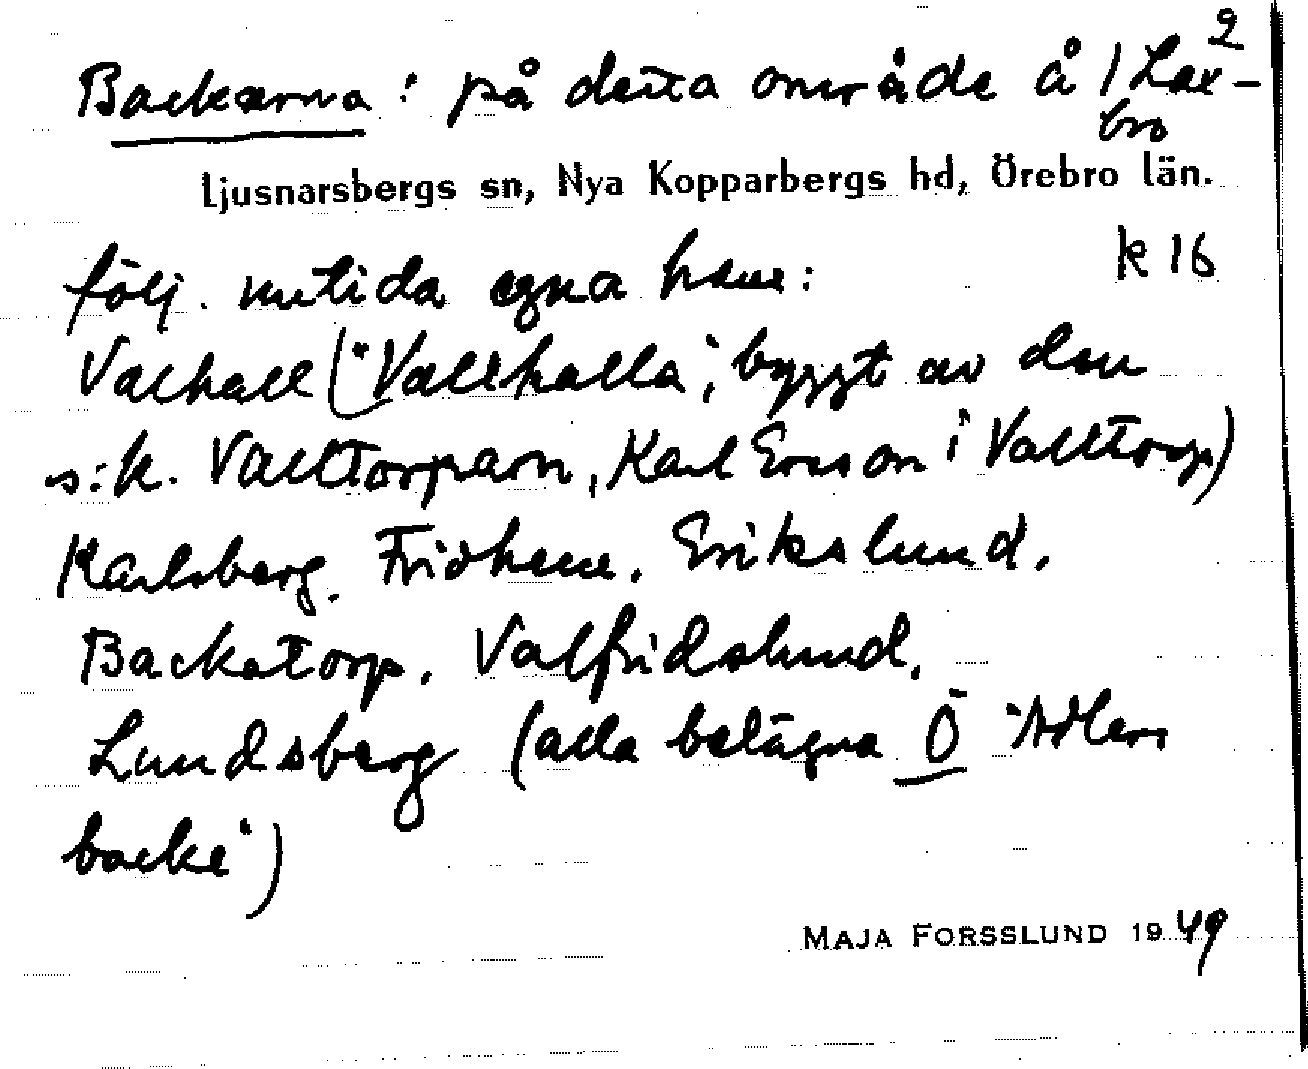 2
Backarna: på detta område å 1 Lax-
bro
Ljusnarsbergs sn, Nya Kopparbergs hd, Örebro län.
k 16
följ. nutida egna hem:
Valhall ("Vallhalla", byggt av den
s.k. Valltorparn, Karl Ersson i Valltorp)
Karlsberg. Fridhem. Erikslund.
Backatorp. Valfridslund.
Lundsberg (alla belägna Ö "Adlers
backe")
MAJA FORSSLUND 1949